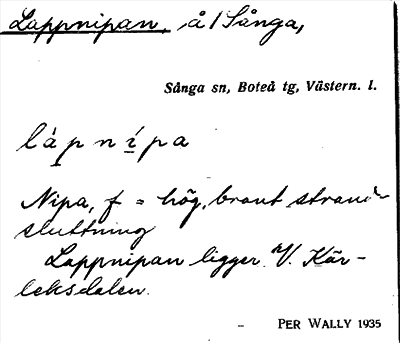 Lappnipan, å/Sånga,
Sånga sn, Boteå tg, Västern. l.
lá̱p n í̱ p a
Nipa, f = hög, brant strand-
sluttning
Lappnipan ligger V. Kär-
leksdalen.
- PER WALLY 1935